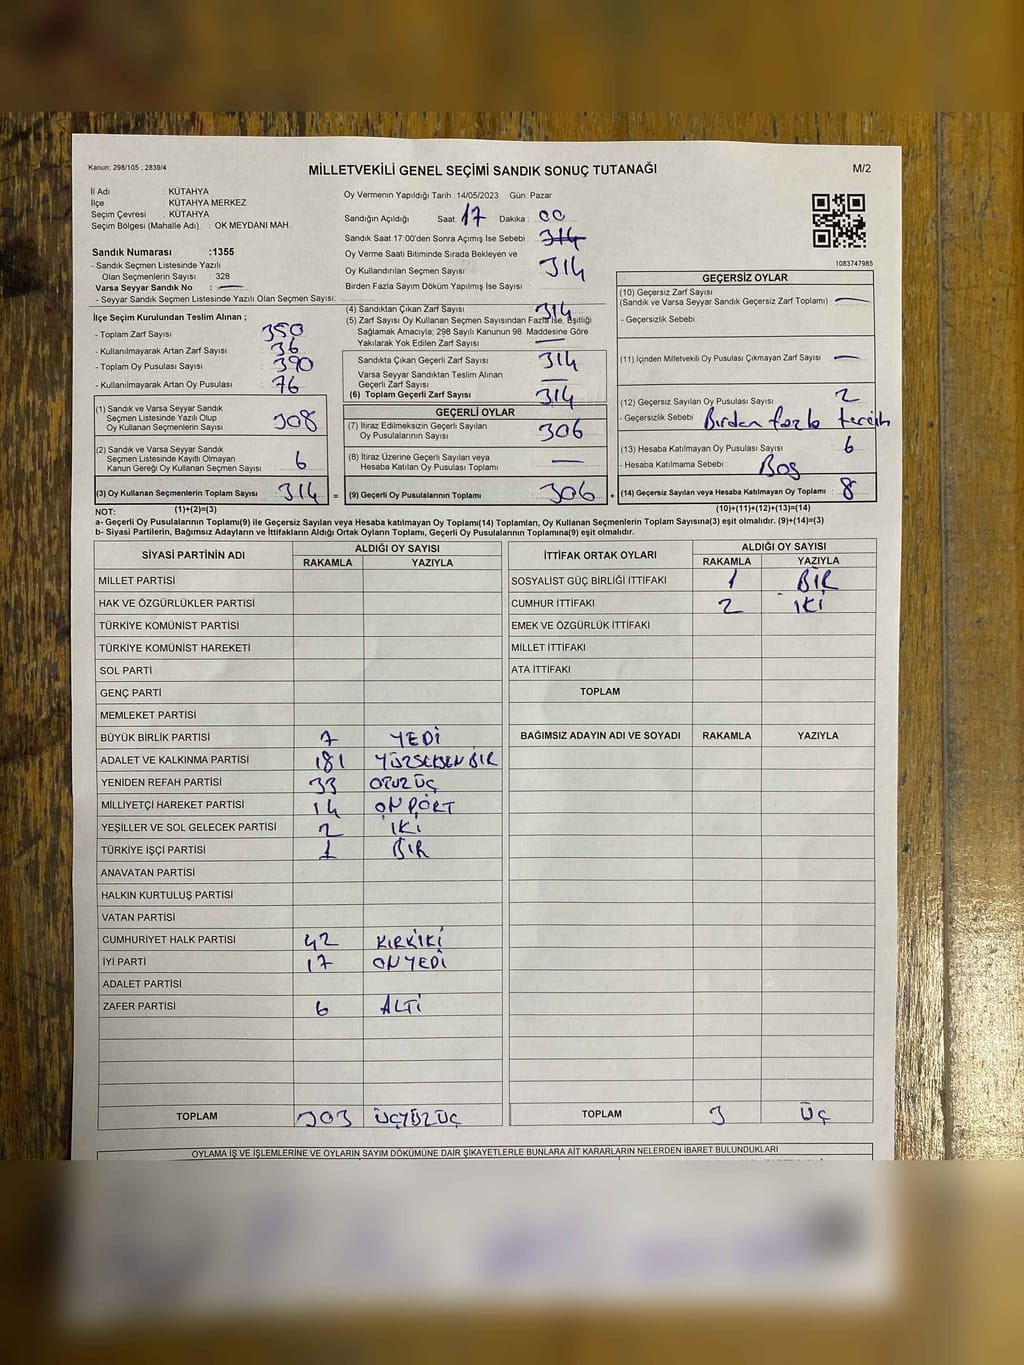 Kanun: 298/105 , 2839/4
MİLLETVEKİLİ GENEL SEÇİMİ SANDIK SONUÇ TUTANAĞI
M/2
İl Adı : KÜTAHYA
İlçe : KÜTAHYA MERKEZ
Seçim Çevresi : KÜTAHYA
Seçim Bölgesi (Mahalle Adı) : OK MEYDANI MAH.
Sandık Numarası :1355
- Sandık Seçmen Listesinde Yazılı
Olan Seçmenlerin Sayısı : 328
Varsa Seyyar Sandık No : —
- Seyyar Sandık Seçmen Listesinde Yazılı Olan Seçmen Sayısı:
Oy Vermenin Yapıldığı Tarih :14/05/2023 Gün: Pazar
Sandığın Açıldığı Saat: 17 Dakika : 00
Sandık Saat 17:00'den Sonra Açımış İse Sebebi : 314
Oy Verme Saati Bitiminde Sırada Bekleyen ve
Oy Kullandırılan Seçmen Sayısı : 314
Birden Fazla Sayım Döküm Yapılmış İse Sayısı :
1083747985
İlçe Seçim Kurulundan Teslim Alınan ;
- Toplam Zarf Sayısı : 350
- Kullanılmayarak Artan Zarf Sayısı : 36
- Toplam Oy Pusulası Sayısı : 390
- Kullanılmayarak Artan Oy Pusulası : 76
(1) Sandık ve Varsa Seyyar Sandık
Seçmen Listesinde Yazılı Olup
Oy Kullanan Seçmenlerin Sayısı : 308
(2) Sandık ve Varsa Seyyar Sandık
Seçmen Listesinde Kayıtlı Olmayan
Kanun Gereği Oy Kullanan Seçmen Sayısı : 6
(3) Oy Kullanan Seçmenlerin Toplam Sayısı : 314 =
(4) Sandıktan Çıkan Zarf Sayısı : 314
(5) Zarf Sayısı Oy Kullanan Seçmen Sayısından Fazla İse, Eşitliği
Sağlamak Amacıyla; 298 Sayılı Kanunun 98. Maddesine Göre
Yakılarak Yok Edilen Zarf Sayısı : —
Sandıkta Çıkan Geçerli Zarf Sayısı : 314
Varsa Seyyar Sandıktan Teslim Alınan
Geçerli Zarf Sayısı : —
(6) Toplam Geçerli Zarf Sayısı : 314
GEÇERLİ OYLAR
(7) İtiraz Edilmeksizin Geçerli Sayılan
Oy Pusulalarının Sayısı : 306
(8) İtiraz Üzerine Geçerli Sayılan veya
Hesaba Katılan Oy Pusulası Toplamı : —
(9) Geçerli Oy Pusulalarının Toplamı : 306 +
GEÇERSİZ OYLAR
(10) Geçersiz Zarf Sayısı
(Sandık ve Varsa Seyyar Sandık Geçersiz Zarf Toplamı) : —
- Geçersizlik Sebebi :
(11) İçinden Milletvekili Oy Pusulası Çıkmayan Zarf Sayısı : —
(12) Geçersiz Sayılan Oy Pusulası Sayısı : 2
- Geçersizlik Sebebi : Birden fazla tercih
(13) Hesaba Katılmayan Oy Pusulası Sayısı : 6
- Hesaba Katılmama Sebebi : Boş
(14) Geçersiz Sayılan veya Hesaba Katılmayan Oy Toplamı : 8
NOT: (1)+(2)=(3) (10)+(11)+(12)+(13)=(14)
a- Geçerli Oy Pusulalarının Toplamı(9) ile Geçersiz Sayılan veya Hesaba katılmayan Oy Toplamı(14) Toplamları, Oy Kullanan Seçmenlerin Toplam Sayısına(3) eşit olmalıdır. (9)+(14)=(3)
b- Siyasi Partilerin, Bağımsız Adayların ve İttifakların Aldığı Ortak Oyların Toplamı, Geçerli Oy Pusulalarının Toplamına(9) eşit olmalıdır.
SİYASİ PARTİNİN ADI ALDIĞI OY SAYISI
RAKAMLA YAZIYLA
MİLLET PARTİSİ
HAK VE ÖZGÜRLÜKLER PARTİSİ
TÜRKİYE KOMÜNİST PARTİSİ
TÜRKİYE KOMÜNİST HAREKETİ
SOL PARTİ
GENÇ PARTİ
MEMLEKET PARTİSİ
BÜYÜK BİRLİK PARTİSİ 7 YEDİ
ADALET VE KALKINMA PARTİSİ 181 YÜZSEKSEN BİR
YENİDEN REFAH PARTİSİ 33 OTUZ ÜÇ
MİLLİYETÇİ HAREKET PARTİSİ 14 ONDÖRT
YEŞİLLER VE SOL GELECEK PARTİSİ 2 İKİ
TÜRKİYE İŞÇİ PARTİSİ 1 BİR
ANAVATAN PARTİSİ
HALKIN KURTULUŞ PARTİSİ
VATAN PARTİSİ
CUMHURİYET HALK PARTİSİ 42 KIRKİKİ
İYİ PARTİ 17 ONYEDİ
ADALET PARTİSİ
ZAFER PARTİSİ 6 ALTI
TOPLAM 303 ÜÇYÜZÜÇ
İTTİFAK ORTAK OYLARI ALDIĞI OY SAYISI
RAKAMLA YAZIYLA
SOSYALİST GÜÇ BİRLİĞİ İTTİFAKI 1 BİR
CUMHUR İTTİFAKI 2 İKİ
EMEK VE ÖZGÜRLÜK İTTİFAKI
MİLLET İTTİFAKI
ATA İTTİFAKI
TOPLAM
BAĞIMSIZ ADAYIN ADI VE SOYADI RAKAMLA YAZIYLA
TOPLAM 3 ÜÇ
OYLAMA İŞ VE İŞLEMLERİNE VE OYLARIN SAYIM DÖKÜMÜNE DAİR ŞİKAYETLERLE BUNLARA AİT KARARLARIN NELERDEN İBARET BULUNDUKLARI